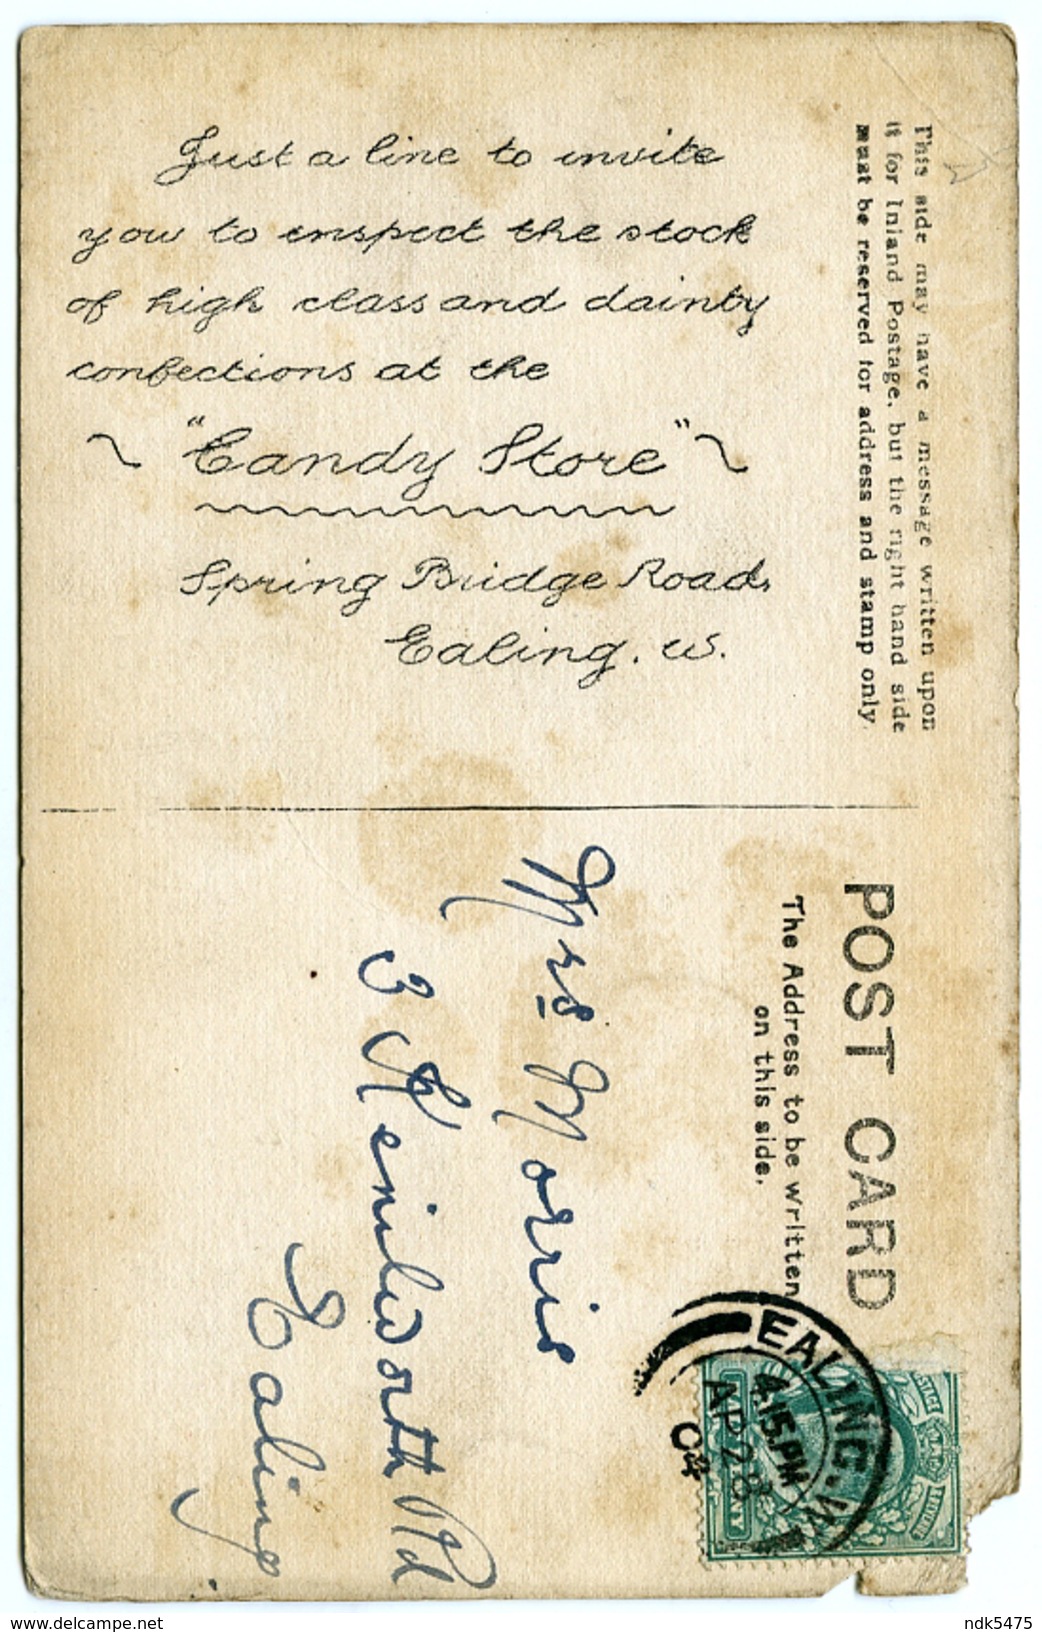 Just a line to invite
you to inspect the stock
of high class and dainty
confections at the
~ "Candy Store" ~
Spring Bridge Road,
Ealing. W.
This side may have a message written upon
it for Inland Postage, but the right hand side
must be reserved for address and stamp only.
POST CARD
The Address to be written
on this side.
Mrs Morris
3 Kenilworth Rd
Ealing
EALING. W
4.15 PM
AP 28
04
delcampe.net
ndk5475